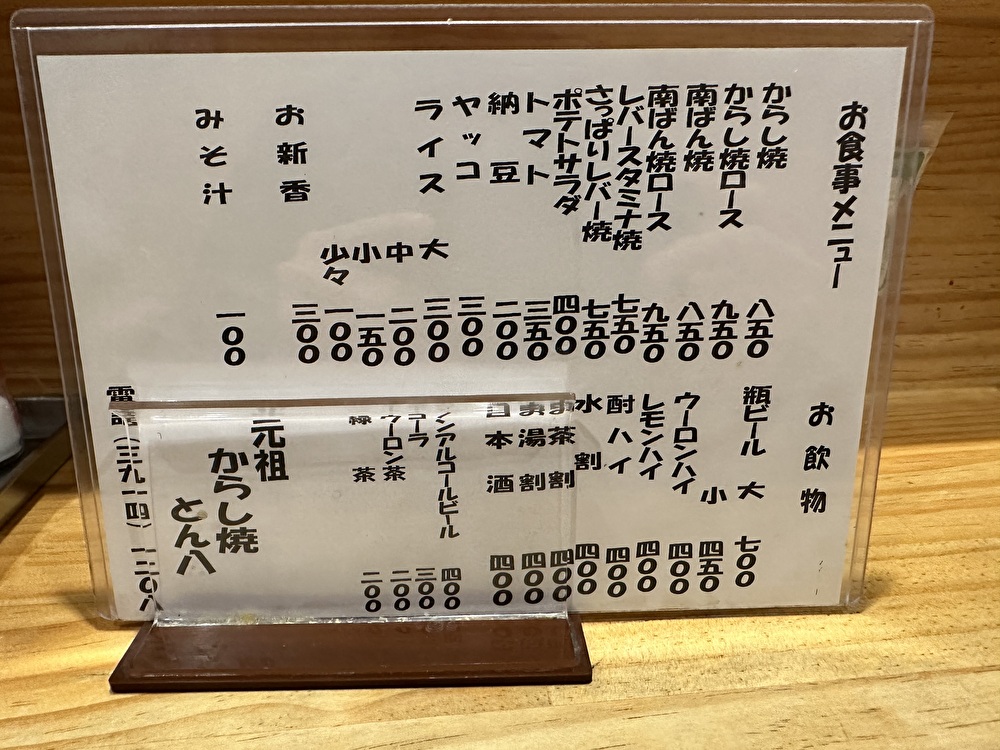 お食事メニュー
からし焼 八五〇
からし焼ロース 九五〇
南ばん焼 八五〇
南ばん焼ロース 九五〇
レバースタミナ焼 七五〇
さっぱりレバー焼 七五〇
ポテトサラダ 四〇〇
トマト 三五〇
納豆 二〇〇
ヤッコ 三〇〇
ライス 大 三〇〇
中 二〇〇
小 一五〇
少々 一〇〇
お新香 三〇〇
みそ汁 一〇〇
お飲物
瓶ビール 大 七〇〇
小 四五〇
ウーロンハイ 四〇〇
レモンハイ 四〇〇
酎ハイ 四〇〇
水割 四〇〇
お茶割 四〇〇
お湯割 四〇〇
日本酒 四〇〇
ノンアルコールビール 四〇〇
コーラ 三〇〇
ウーロン茶 二〇〇
緑茶 二〇〇
元祖
からし焼
とん八
電話(三九一四)一二〇八